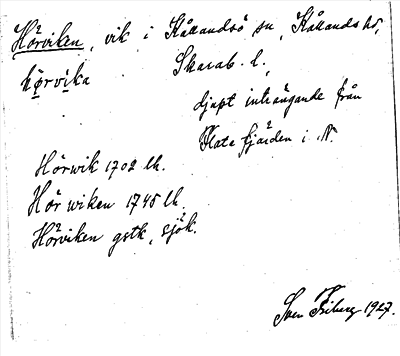 Hörviken, vik i Kållandsö sn, Kållands hd,
hö̱rvi̱ka
Skarab. l.
djupt inträngande från
Hate fjärden i N.
Hörwik 1702 lh.
Hörwiken 1745 lh.
Hörviken gstk, sjök.
Sven Friberg 1927.